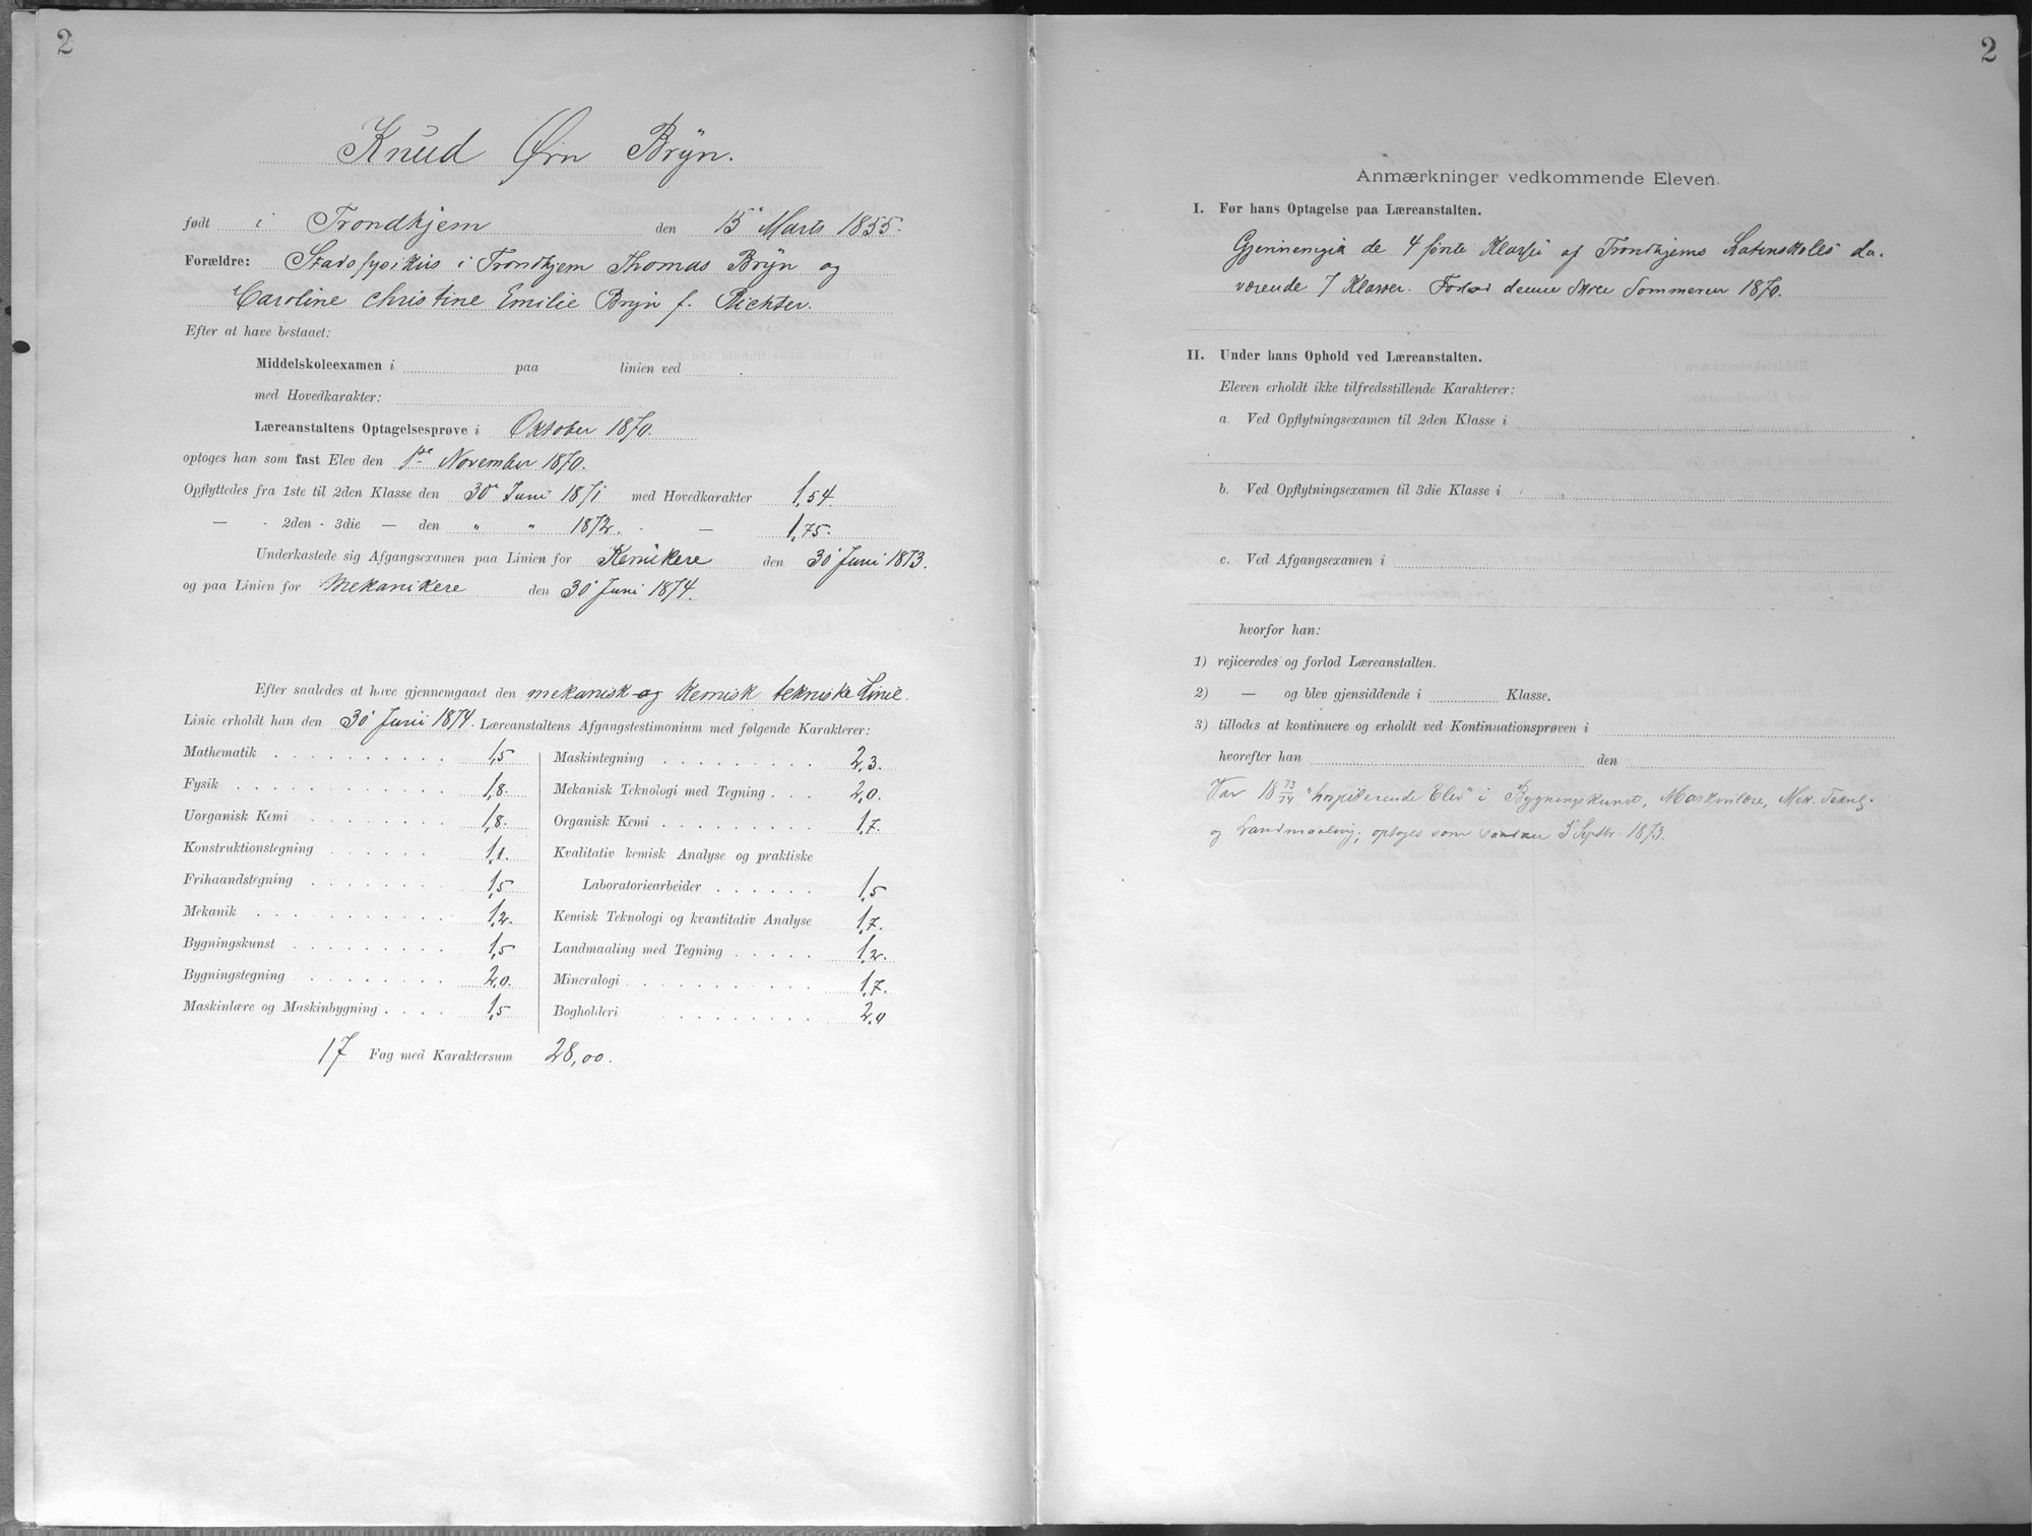 2
Knud Örn Brÿn.
født i Trondhjem den 15' Marts 1855.
Forældre: Stadsfysikus i Trondhjem Thomas Brÿn og
Caroline Christine Emilie Brÿn f. Richter.
Efter at have bestaaet:
Middelskoleexamen i paa linien ved
med Hovedkarakter:
Læreanstaltens Optagelsesprøve i Oktober 1870.
optoges han som fast Elev den 1ste November 1870.
Opflyttedes fra 1ste til 2den Klasse den 30' Juni 1871 med Hovedkarakter 1,54.
— - 2den - 3die — den " " 1872. - — 1,75.
Underkastede sig Afgangsexamen paa Linien for Kemikere den 30' Juni 1873.
og paa Linien for Mekanikere den 30' Juni 1874.
Efter saaledes at have gjennemgaaet den mekanisk og kemisk tekniske Linie.
Linie erholdt han den 30' Juni 1874. Læreanstaltens Afgangstestimonium med følgende Karakterer:
Mathematik 1,5
Fysik 1,8.
Uorganisk Kemi 1,8.
Konstruktionstegning 1,1.
Frihaandstegning 1,5
Mekanik 1,2.
Bygningskunst 1,5
Bygningstegning 2,0.
Maskinlære og Maskinbygning 1,5
Maskintegning 2,3.
Mekanisk Teknologi med Tegning 2,0.
Organisk Kemi 1,7.
Kvalitativ kemisk Analyse og praktiske
Laboratoriearbeider 1,5
Kemisk Teknologi og kvantitativ Analyse 1,7.
Landmaaling med Tegning 1,2.
Mineralogi 1,7.
Bogholderi 2,0
17 Fag med Karaktersum 28,00.
2
Anmærkninger vedkommende Eleven.
I. Før hans Optagelse paa Læreanstalten.
Gjennemgik de 4 første Klasser af Trondhjems Latinskoles da-
værende 7 Klasser. Forlod denne Skole Sommeren 1870.
II. Under hans Ophold ved Læreanstalten.
Eleven erholdt ikke tilfredsstillende Karakterer:
a. Ved Opflytningsexamen til 2den Klasse i
b. Ved Opflytningsexamen til 3die Klasse i
c. Ved Afgangsexamen i
hvorfor han:
1) rejiceredes og forlod Læreanstalten.
2) — og blev gjensiddende i Klasse.
3) tillodes at kontinuere og erholdt ved Kontinuationsprøven i
hvorefter han den
Var 18 73/74 "hospiterende Elev" i Bygningskunst, Maskinlære, Mek. Teknlg.
og Landmaaling; optoges som saadan 5' Septbr. 1873.